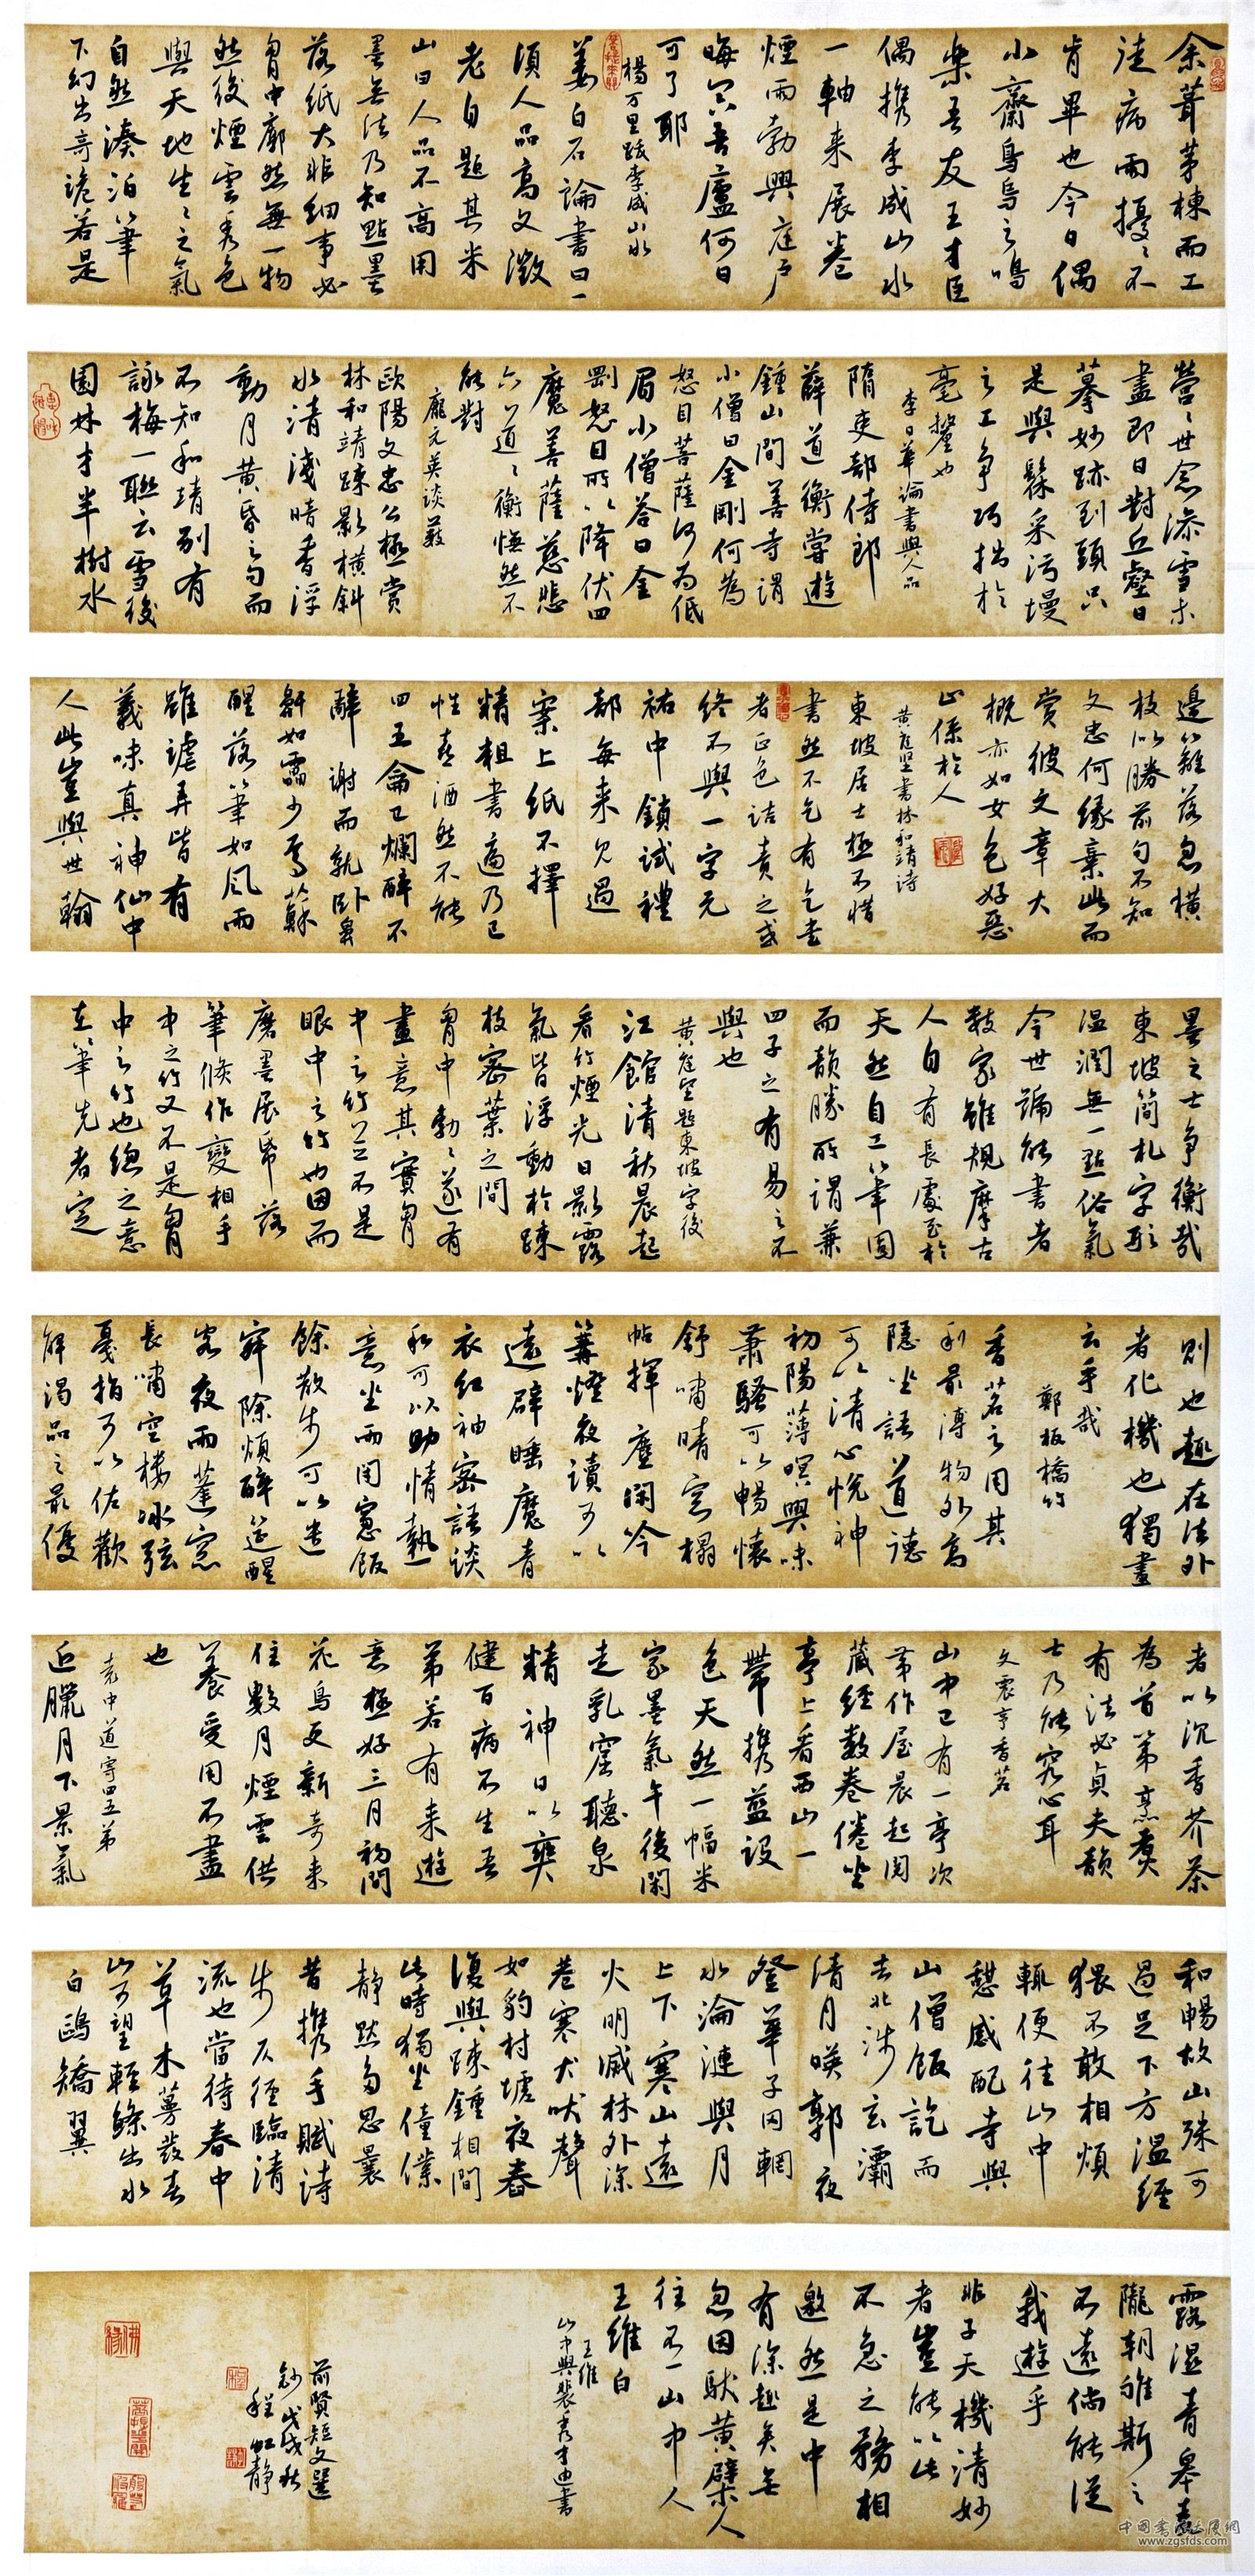 余葺茅棟而工
徒病雨擾擾不
肯畢也今日偶
小齋鳥烏之鳴
樂吾友王才臣
偶攜李成山水
一軸来展卷
煙雨勃興庭戶
晦冥吾廬何日
可了耶
楊万里跋李成山水
姜白石論書曰一
須人品高文徵
老自題其米
山曰人品不高用
墨無法乃知點墨
落紙大非細事必
胷中廓然無一物
然後煙雲秀色
與天地生生之氣
自然湊泊筆
下幻出奇詭若是
營營世念澡雪未
盡即日對丘壑日
摹妙跡到頭只
是與髹采污墁
之工争巧拙於
毫釐也
李日華論書與人品
隋吏部侍郎
薛道衡嘗遊
鍾山開善寺謂
小僧曰金剛何為
怒目菩薩何為低
眉小僧答曰金
剛怒目所以降伏四
魔菩薩慈悲
六道道衡憮然不
能對
龐元英談藪
歐陽文忠公極賞
林和靖疎影橫斜
水清淺暗香浮
動月黄昏之句而
不知和靖别有
詠梅一聯云雪後
園林才半樹水
邊籬落忽橫
枝似勝前句不知
文忠何緣棄此而
賞彼文章大
概亦如女色好惡
止係於人
黄庭坚書林和靖诗
東坡居士極不惜
書然不乞有乞書
者正色詰責之或
終不與一字元
祐中鎖試禮
部每来見過
案上紙不擇
精粗書遍乃已
性喜酒然不能
四五龠已爛醉不
辭謝而就卧鼻
鼾如雷少焉蘇
醒落筆如風雨
雖謔弄皆有
義味真神仙中
人此豈與世翰
墨之士争衡哉
東坡簡札字形
温潤無一點俗氣
今世號能書者
數家雖規摩古
人自有長處至於
天然自工筆圓
而韻勝所謂兼
四子之有易之不
與也
黄庭坚题東坡字後
江館清秋晨起
看竹煙光日影露
氣皆浮動於疎
枝密葉之間
胷中勃勃遂有
畫意其實胷
中之竹並不是
眼中之竹也因而
磨墨展紙落
筆倏作變相手
中之竹又不是胷
中之竹也總之意
在筆先者定
則也趣在法外
者化機也獨畫
云乎哉
鄭板橋竹
香茗之用其
利最溥物外高
隱坐語道德
可以清心悅神
初陽薄暝興味
蕭騷可以暢懷
舒嘯晴窓榻
帖揮麈閑吟
篝燈夜讀可以
遠辟睡魔青
衣红袖密語談
私可以助情熱
意坐雨閉窻飯
餘散步可以遣
寂除煩醉筵醒
客夜雨蓬窓
長嘯空樓冰弦
戛指可以佐歡
解渴品之最優
者以沉香芥茶
為首第烹煮
有法必貞夫韻
士乃能究心耳
文震亨香茗
山中已有一亭次
第作屋晨起閱
藏经數卷倦坐
亭上看西山一
帶攜藍設
色天然一幅米
家墨氣午後閑
走乳窟聽泉
精神日以爽
健百病不生吾
弟若有来遊
意極好三月初間
花鳥更新奇来
住數月煙雲供
養受用不盡
也
袁中道寄四五弟
近臘月下景氣
和暢故山殊可
過足下方温經
猥不敢相煩
輒便往山中
憩感配寺與
山僧飯訖而
去北涉玄灞
清月暎郭夜
登華子岡輞
水淪漣與月
上下寒山遠
火明滅林外深
巷寒犬吠聲
如豹村墟夜舂
復與疎鍾相間
此時獨坐僮僕
静默多思曩
昔攜手賦詩
步仄徑臨清
流也當待春中
草木蔓發春
山可望輕鯈出水
白鷗矯翼
露濕青皋麦
隴朝雊斯之
不遠倘能從
我遊乎
非子天機清妙
者豈能以此
不急之務相
邀然是中
有深趣矣無
忽因馱黄檗人
往不一山中人
王維白
王维
山中與裴秀才迪書
前賢短文選
鈔戊戌秋
程虹静
中国书法大厦網
www.zgsfds.com